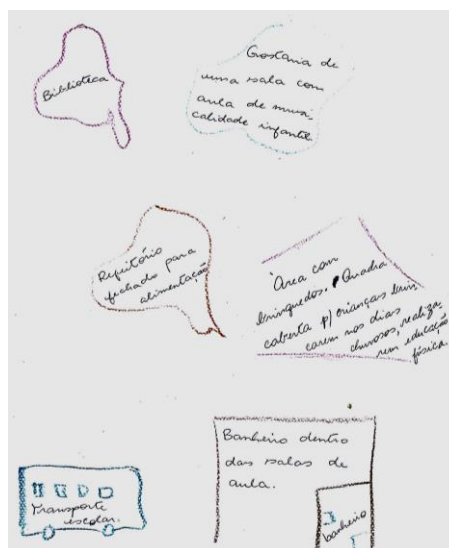 Biblioteca
Gostaria de
uma sala com
aula de musi-
calidade infantil
Refeitório
fechado para
alimentação
Área com
brinquedos. Quadra
coberta p/ crianças brin
carem nos dias
chuvosos, realiza
rem educação
física
Banheiro dentro
das salas de
aula.
Transporte
escolar.
banheiro